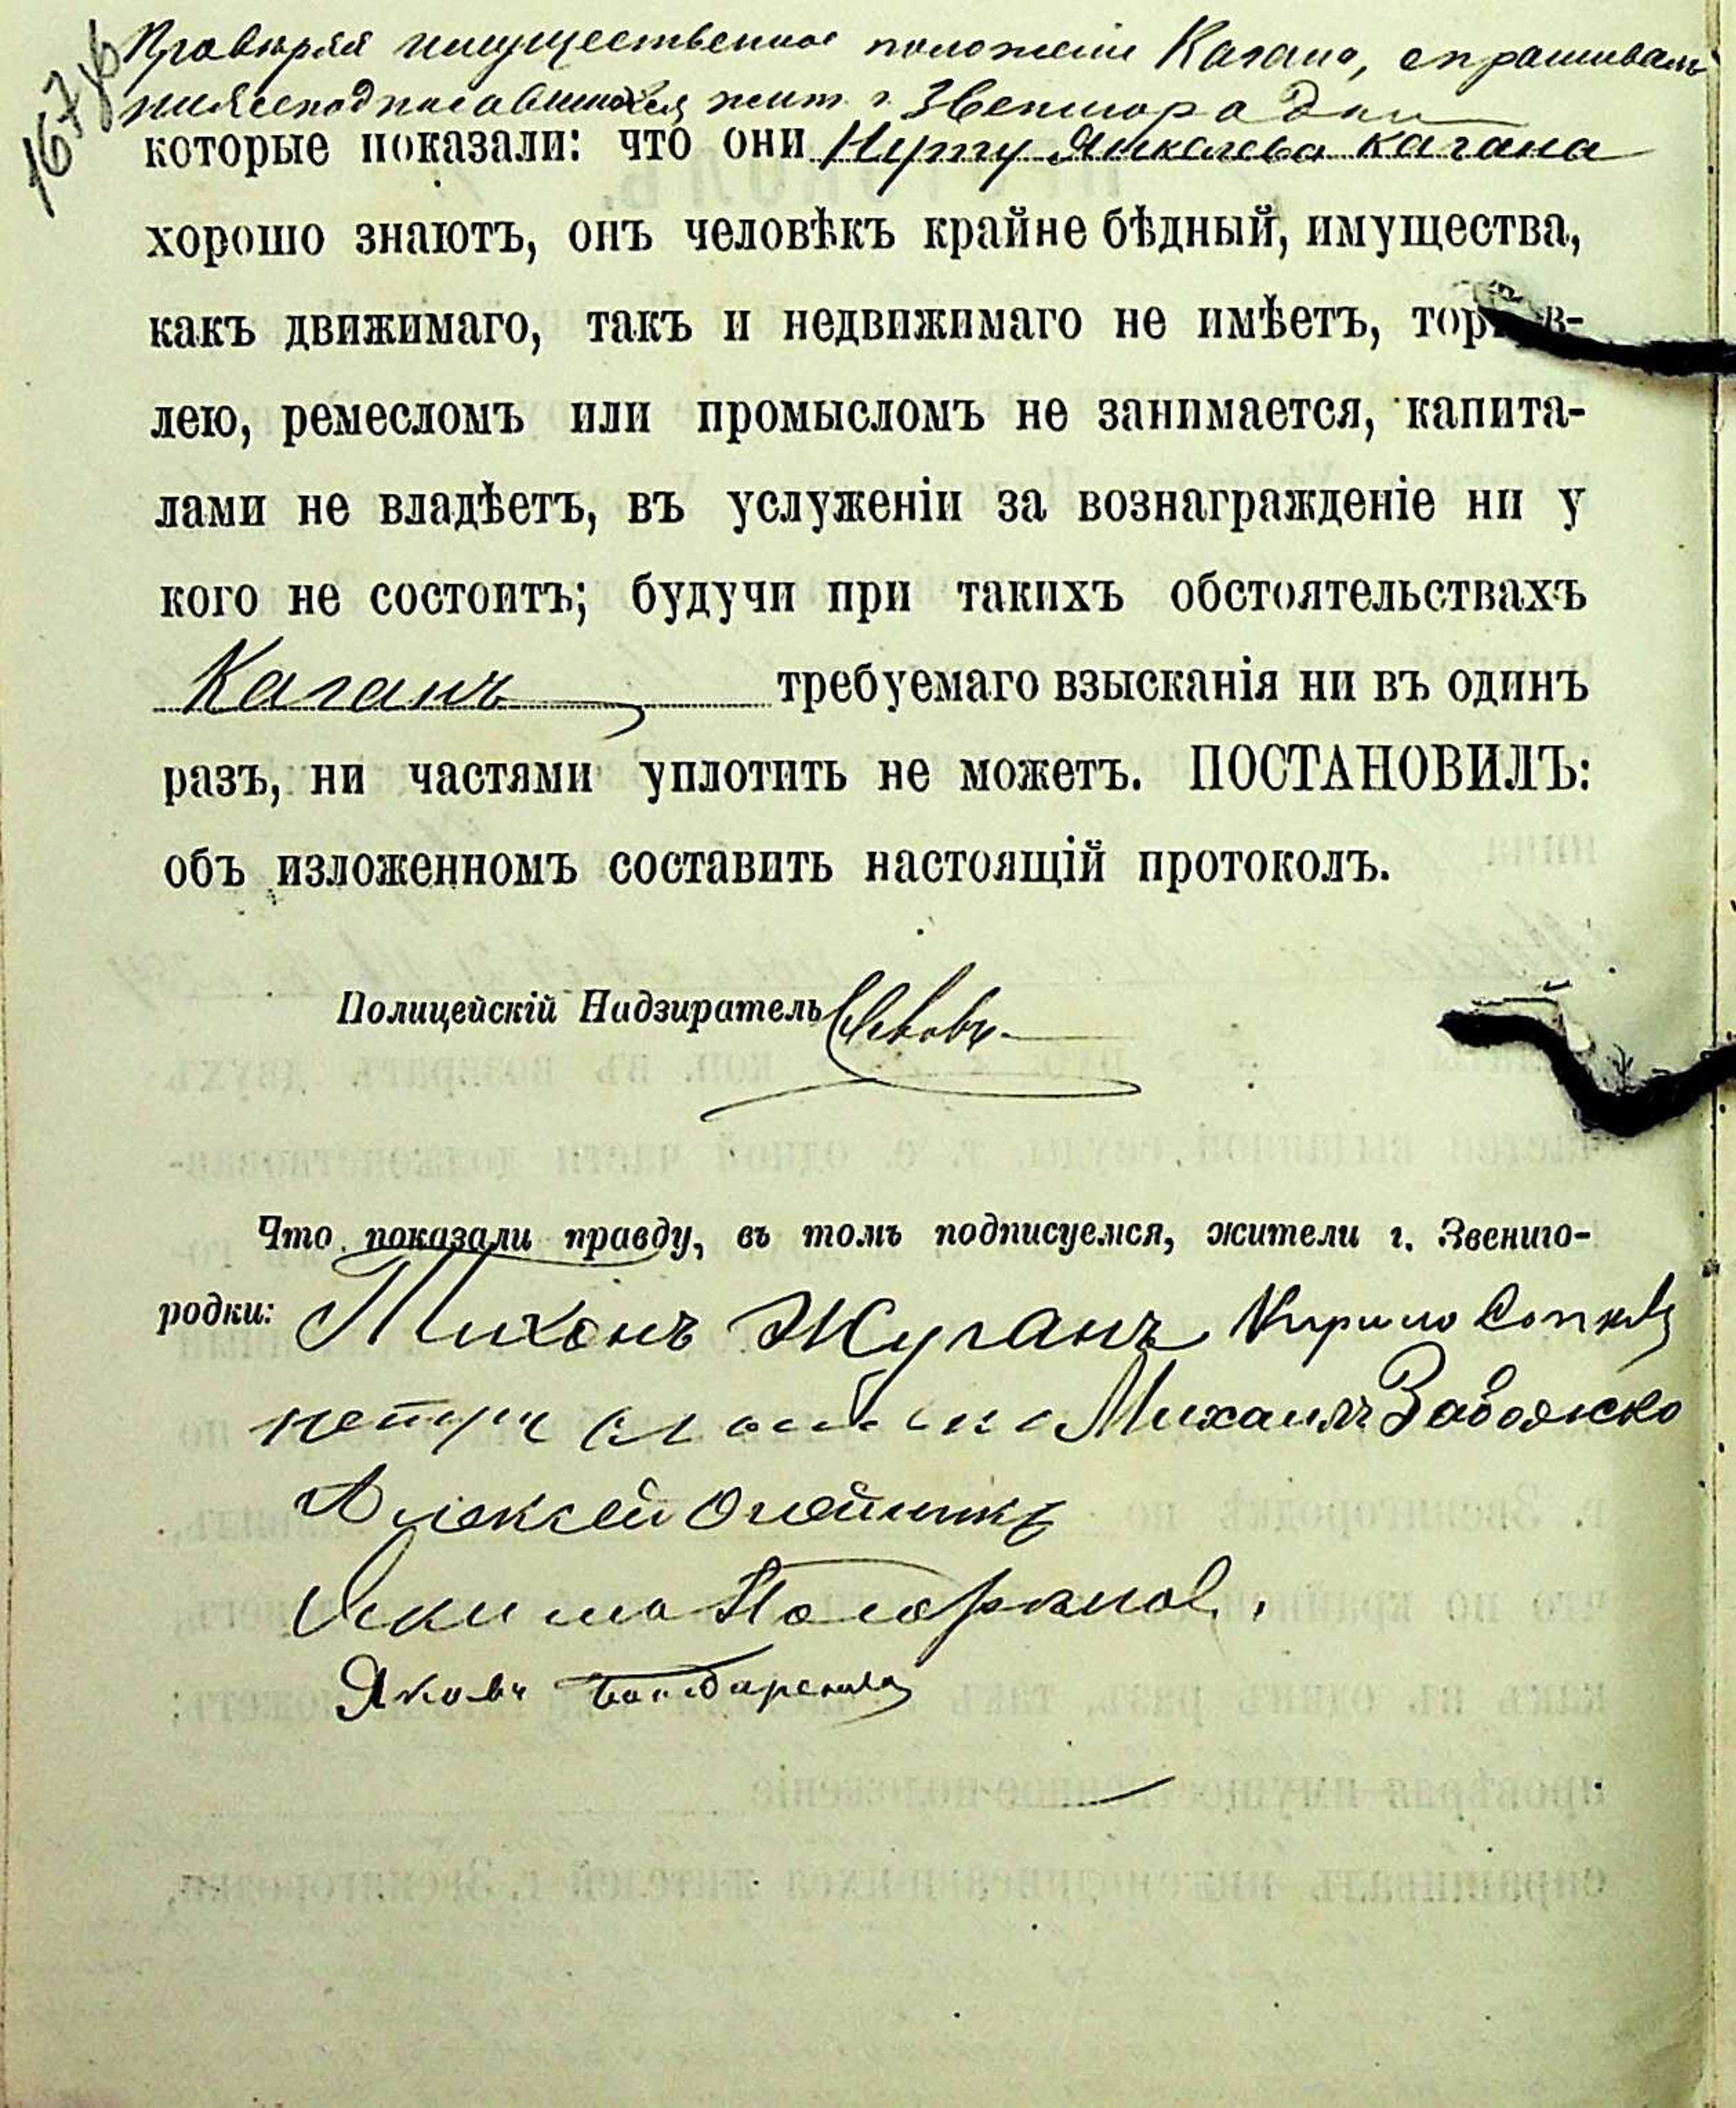 167 об
Провѣряя имущественное положеніе Кагана, спрашивалъ
нижеподписавшихся жит. г. Звенигородки
которые показали: что они Нутту Янкелева Кагана
хорошо знаютъ, онъ человѣкъ крайне бѣдный, имущества,
какъ движимаго, такъ и недвижимаго не имѣетъ, торгов-
лею, ремесломъ или промысломъ не занимается, капита-
лами не владѣетъ, въ услуженіи за вознагражденіе ни у
кого не состоитъ; будучи при такихъ обстоятельствахъ
Каганъ требуемаго взысканія ни въ одинъ
разъ, ни частями уплотить не можетъ. ПОСТАНОВИЛЪ:
объ изложенномъ составить настоящій протоколъ.
Полицейскій Надзиратель
Что показали правду, въ томъ подписуемся, жители г. Звениго-
родки: Тихонъ Жуганъ Кирило
петръ Михаилъ Забоянско
Алексей Олейникъ
Якима
Яковъ Бондаренко